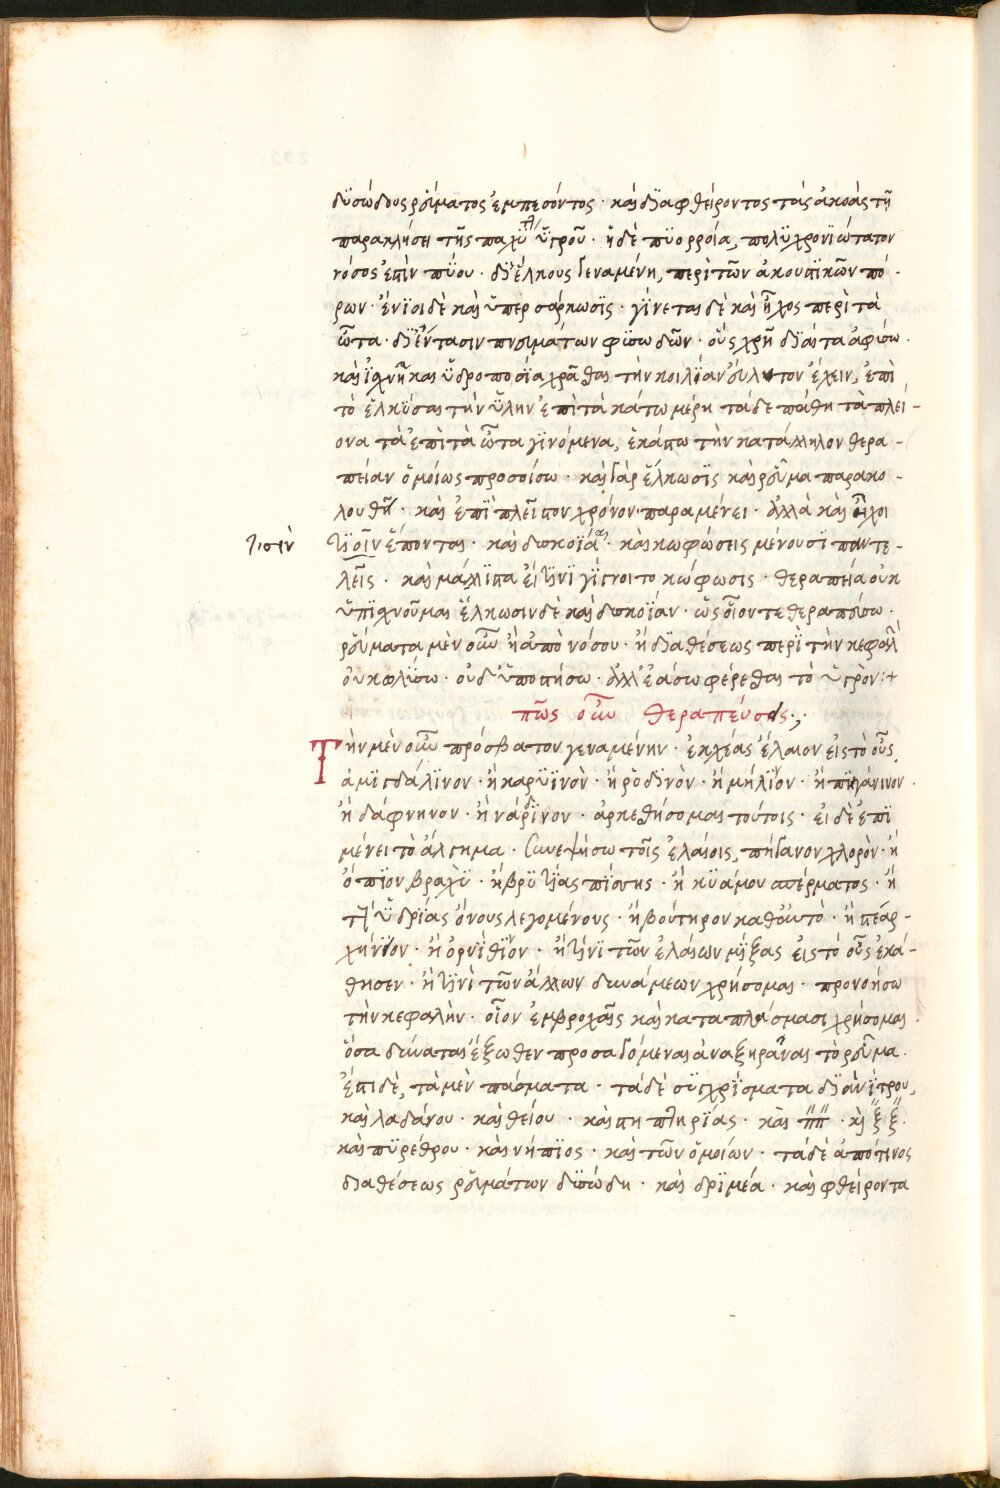 δϋσώδους ρεύματος ἐμπεσόντος · καὶ διαφθείροντος τὰς ἀκοὰς τῆ
παρακλήσει τῆς παχϋτ ὑγροῦ · ἡ δὲ πϋορροία, πολϋχρονϊώτατον
νόσος ἐπὶν πϋου · δι' ἕλκους γεναμένη, περὶ τῶν ἀκουϊκῶν πό-
ρων · ἐνίοι δὲ καὶ ὑπερσάρκωσϊς · γίνεται δὲ καὶ ἦχος περὶ τὰ
ὦτα · δι' ἔντασιν πνευμάτων φυσωδῶν · οὓς χρὴ δϊαίτα ἀφύσω ·
καὶ ἰχνῆ καὶ ὑδροποσία χρᾶσθαι τὴν κοιλίαν εὔλυτον ἔχειν, ἐπὶ
τὸ ἑλκῦσαι τὴν ὕλην ἐπὶ τὰ κάτω μέρη τάδε πάθη τὰ πλεί-
ονα τὰ ἐπὶ τὰ ὦτα γϊνόμενα, ἑκάστω τὴν κατάλληλον θερα-
πείαν ὁμοίως προσοίσω · καὶ γὰρ ἕλκωσϊς καὶ ρεῦμα παρακο-
λουθῆ · καὶ ἐπὶ πλεῖστον χρόνον παραμένει · ἀλλὰ καὶ ἦχοι
τισὶν
τϊσῖν ἕπονται · καὶ δυσκοΐα · καὶ κωφώσεις μένουσϊ παντε-
λεῖς · καὶ μάλϊστα εἴ τϊνϊ γένοιτο κώφωσις · θεραπεία οὐκ
ὑπϊχνοῦμαι ἕλκωσιν δὲ καὶ δυσκοΐαν · ὡς οἷον τε θεραπεύσω ·
ρεύματα μὲν οὖν ἢ ἀπὸ νόσου · ἢ διαθέσεως περὶ τὴν κεφαλὴ
οὐ κωλύσω · οὐδ' ὑποστήσω · ἀλλ' ἐάσω φέρεσθαι τὸ ὑγρὸν :+
πῶς οὖν θεραπεύσεις ·,
Τὴν μὲν οὖν πρόσβατον γεναμένην · ἐκχέας ἔλαιον εἰς τὸ οὖς
ἀμϊγδάλϊνον · ἢ καρϋϊνὸν · ἢ ῥόδϊνὸν · ἢ μήλϊνον · ἢ πϊγάνινον ·
ἢ δάφνηνον · ἢ νάρδϊνον · ἀρκεθήσομαι τούτοις · εἰ δὲ ἐπϊ
μένει τὸ ἄλγημα · συνεψήσω τοῖς ἐλαίοις, πήγανον χλορὸν · ἢ
ὄπϊον βραχϋ · ἢ βρϋτίας πίονης · ἢ κϋάμον σπέρματος · ἢ
τ ὑδρίας ὄνους λεγομένους · ἢ βούτηρον καθ' αὑτὸ · ἢ στέαρ-
χήνϊον · ἢ ὀρνίθϊον · ἢ τϊνϊ τῶν ἐλαίων μϊξας εἰς τὸ οὖς ἐκά-
θησεν · ἢ τϊνὶ τῶν ἄλλων δυνάμεων χρήσομαι · προνοήσω
τὴν κεφαλὴν · οἷον ἐμβροχαῖς καὶ καταπλάσμασι χρήσομαι ·
ὅσα δύναται ἔξωθεν προσαγόμεναι ἀναξηράναι τὸ ρεῦμα ·
ἔστι δὲ, τὰ μὲν πάσματα · τὰ δὲ σϋγχρίσματα δϊὰ νίτρου,
καὶ λαδάνου · καὶ θείου · καὶ στηπτηρίας · καὶ ππ · κὶ ξξ ·
καὶ πϋρέθρου · καὶ νήπϊος · καὶ τῶν ὁμοίων · τὰ δὲ ἀπό τινος
διαθέσεως ρευμάτων δϋσώδη · καὶ δρϊμέα · καὶ φθείροντα